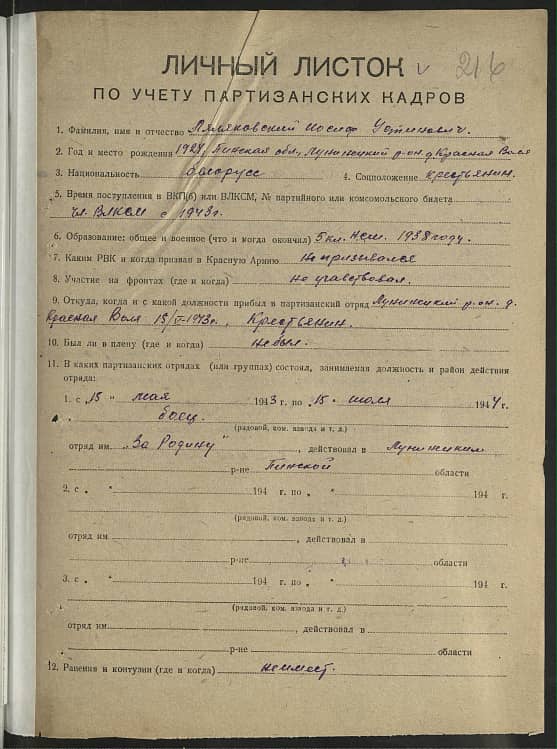 216
ЛИЧНЫЙ ЛИСТОК
ПО УЧЕТУ ПАРТИЗАНСКИХ КАДРОВ
1. Фамилия, имя и отчество Иосиф Устинович.
2. Год и место рождения Пинская обл., Лунинецкий р-он д. Красная Воля
3. Национальность белорусс 4. Соцположение крестьянин.
5. Время поступления в ВКП(б) или ВЛКСМ, № партийного или комсомольского билета
чл. ВЛКСМ с 1943 г.
6. Образование: общее и военное (что и когда окончил) 5 кл. 1938 году.
7. Каким РВК и когда призван в Красную Армию Не призывался
8. Участие на фронтах (где и когда) не участвовал.
9. Откуда, когда и с какой должности прибыл в партизанский отряд Лунинецкий р-он. д.
Красная Воля 15/V-1943 г., Крестьянин.
10. Был ли в плену (где и когда) не был.
11. В каких партизанских отрядах (или группах) состоял, занимаемая должность и район действия
отряда:
1. с „15 " мая 1943 г. по „15. июля 1944 г.
боец.
(рядовой, ком. взвода и т. д.)
отряд им. „За Родину" , действовал в Лунинецком
р-не Пинской области
2. с „ " 194 г. по „ " 194 г.
(рядовой, ком. взвода и т. д.)
отряд им. , действовал в
р-не области
3. с „ " 194 г. по „ " 194 г.
(рядовой, ком. взвода и т. д.)
отряд им. , действовал в
р-не области
12. Ранения и контузии (где и когда) не имеет.